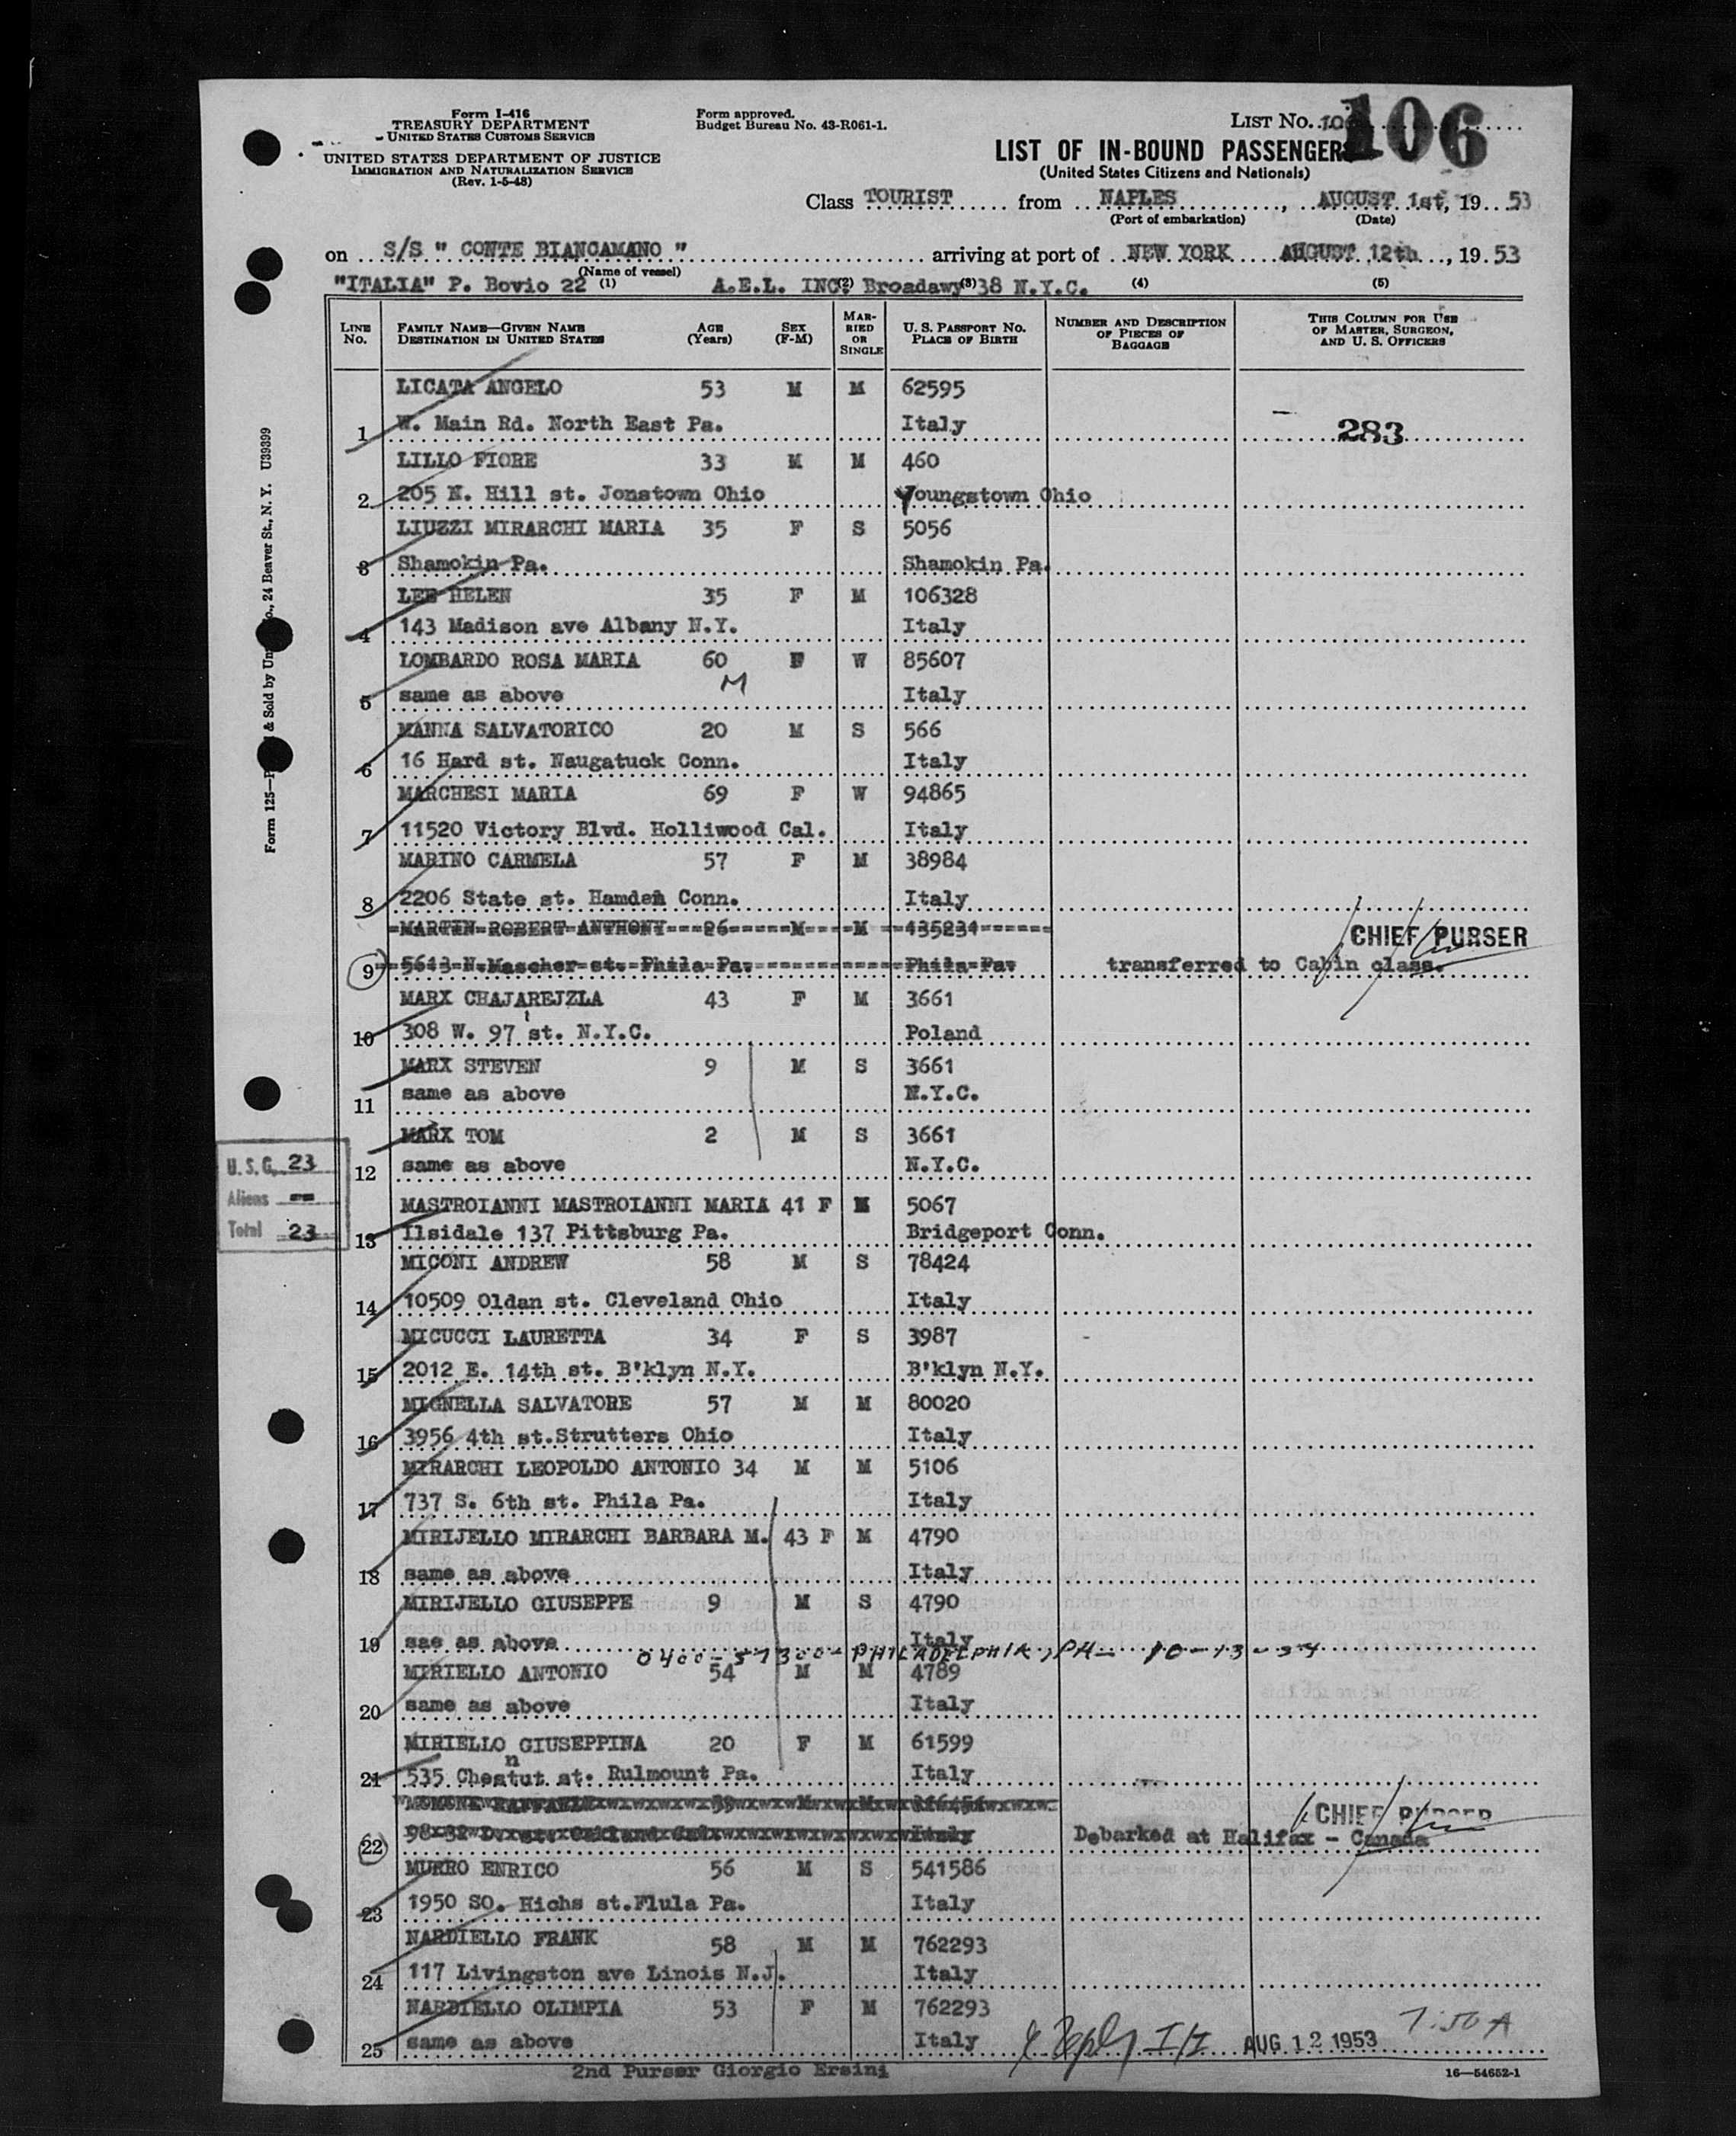 Form I-416
TREASURY DEPARTMENT
UNITED STATES CUSTOMS SERVICE
UNITED STATES DEPARTMENT OF JUSTICE
IMMIGRATION AND NATURALIZATION SERVICE
(Rev. 1-5-48)
Form approved.
Budget Bureau No. 43-R061-1.
LIST No. 106
LIST OF IN-BOUND PASSENGERS
(United States Citizens and Nationals)
Class TOURIST from NAPLES, AUGUST 1st, 19 53
(Port of embarkation) (Date)
on S/S " CONTE BIANCAMANO " arriving at port of NEW YORK AUGUST 12th, 19 53
(Name of vessel)
"ITALIA" P. Bovio 22 (1) A.E.L. INC. (2) Broadawy (3) 38 N.Y.C. (4) (5)
LINE No. FAMILY NAME—GIVEN NAME DESTINATION IN UNITED STATES AGE (Years) SEX (F-M) MARRIED OR SINGLE U. S. PASSPORT No. PLACE OF BIRTH NUMBER AND DESCRIPTION OF PIECES OF BAGGAGE THIS COLUMN FOR USE OF MASTER, SURGEON, AND U. S. OFFICERS
LICATA ANGELO 53 M M 62595
1 W. Main Rd. North East Pa. Italy 283
LILLO FIORE 33 M M 460
2 205 N. Hill st. Jonstown Ohio Youngstown Ohio
LIUZZI MIRARCHI MARIA 35 F S 5056
3 Shamokin Pa. Shamokin Pa.
LEE HELEN 35 F M 106328
4 143 Madison ave Albany N.Y. Italy
LOMBARDO ROSA MARIA 60 F W 85607
5 same as above M Italy
MANNA SALVATORICO 20 M S 566
6 16 Hard st. Naugatuck Conn. Italy
MARCHESI MARIA 69 F W 94865
7 11520 Victory Blvd. Holliwood Cal. Italy
MARINO CARMELA 57 F M 38984
8 2206 State st. Hamden Conn. Italy
MARTIN ROBERT ANTHONY 26 M M 435234 CHIEF PURSER
9 5613 N.Mascher st. Phila Pa. Phila Pa. transferred to Cabin class.
MARX CHAJAREJZLA 43 F M 3661
10 308 W. 97 st. N.Y.C. Poland
MARX STEVEN 9 M S 3661
11 same as above N.Y.C.
MARX TOM 2 M S 3661
12 same as above N.Y.C.
U.S.C. 23
Aliens --
Total 23
MASTROIANNI MASTROIANNI MARIA 41 F M 5067
13 Ilsidale 137 Pittsburg Pa. Bridgeport Conn.
MICONI ANDREW 58 M S 78424
14 10509 Oldan st. Cleveland Ohio Italy
MICUCCI LAURETTA 34 F S 3987
15 2012 E. 14th st. B'klyn N.Y. B'klyn N.Y.
MIGNELLA SALVATORE 57 M M 80020
16 3956 4th st.Strutters Ohio Italy
MIRARCHI LEOPOLDO ANTONIO 34 M M 5106
17 737 S. 6th st. Phila Pa. Italy
MIRIJELLO MIRARCHI BARBARA M. 43 F M 4790
18 same as above Italy
MIRIJELLO GIUSEPPE 9 M S 4790
19 sae as above Italy
0400-57300- PHILADELPHIA, PA- 10-13-54
MIRIELLO ANTONIO 54 M M 4789
20 same as above Italy
MIRIELLO GIUSEPPINA 20 F M 61599
21 535 Chestnut st. Rulmount Pa. Italy
CHIEF PURSER
22 Italy Debarked at Halifax - Canada
MURRO ENRICO 56 M S 541586
23 1950 SO. Hichs st.Flula Pa. Italy
NARDIELLO FRANK 58 M M 762293
24 117 Livingston ave Linois N.J. Italy
NARDIELLO OLIMPIA 53 F M 762293
25 same as above Italy AUG 12 1953 7:50 A
2nd Purser Giorgio Ersini
16—54652-1